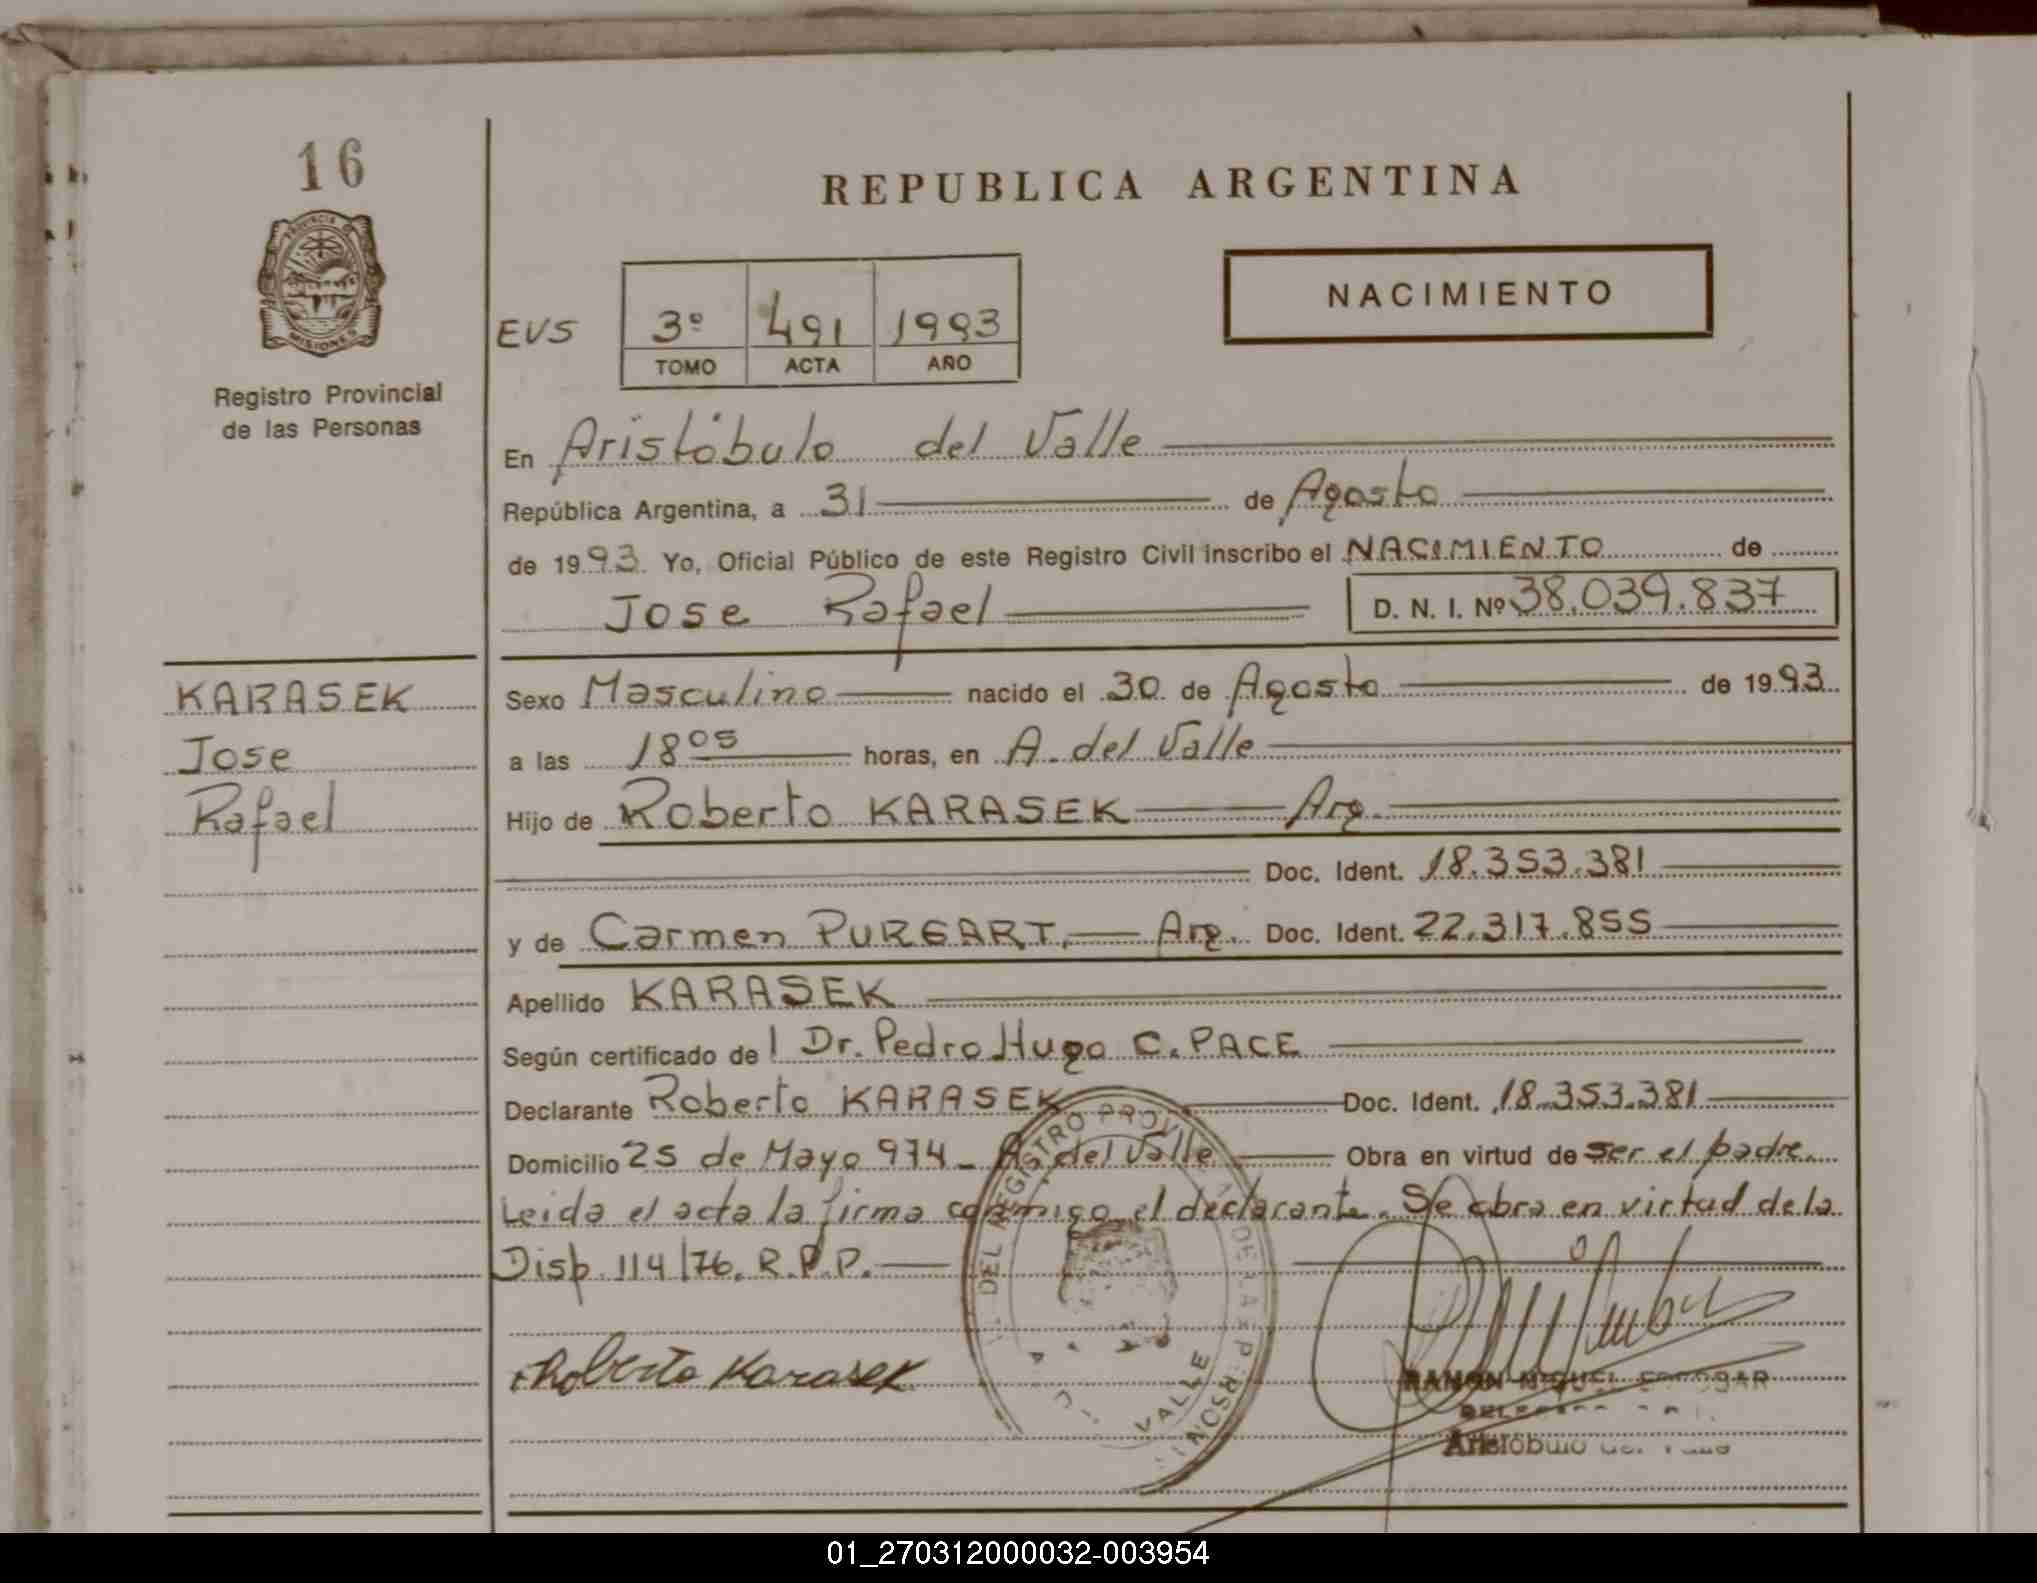 16
REPUBLICA ARGENTINA
PROVINCIA
MISIONES
Registro Provincial
de las Personas
NACIMIENTO
EVS 3º 491 1993
TOMO ACTA AÑO
En Aristóbulo del Valle
República Argentina, a 31 de Agosto
de 1993. Yo, Oficial Público de este Registro Civil inscribo el NACIMIENTO de
Jose Rafael D. N. I. Nº 38.039.837
KARASEK
Jose
Rafael
Sexo Masculino nacido el 30 de Agosto de 1993
a las 18 05 horas, en A. del Valle
Hijo de Roberto KARASEK Arg.
Doc. Ident. 18.353.381
y de Carmen PURGART. Arg. Doc. Ident. 22.317.855
Apellido KARASEK
Según certificado de l Dr. Pedro Hugo C. PACE
Declarante Roberto KARASEK Doc. Ident. 18.353.381
Domicilio 25 de Mayo 974 - A. del Valle Obra en virtud de ser el padre.
Leida el acta la firma conmigo el declarante. Se obra en virtud de la
Disp. 114/76. R.P.P.
DEL REGISTRO
DE LAS
VALLE
Roberto Karasek
RAMON MIGUEL ESCOBAR
Aristóbulo del Valle
01_270312000032-003954